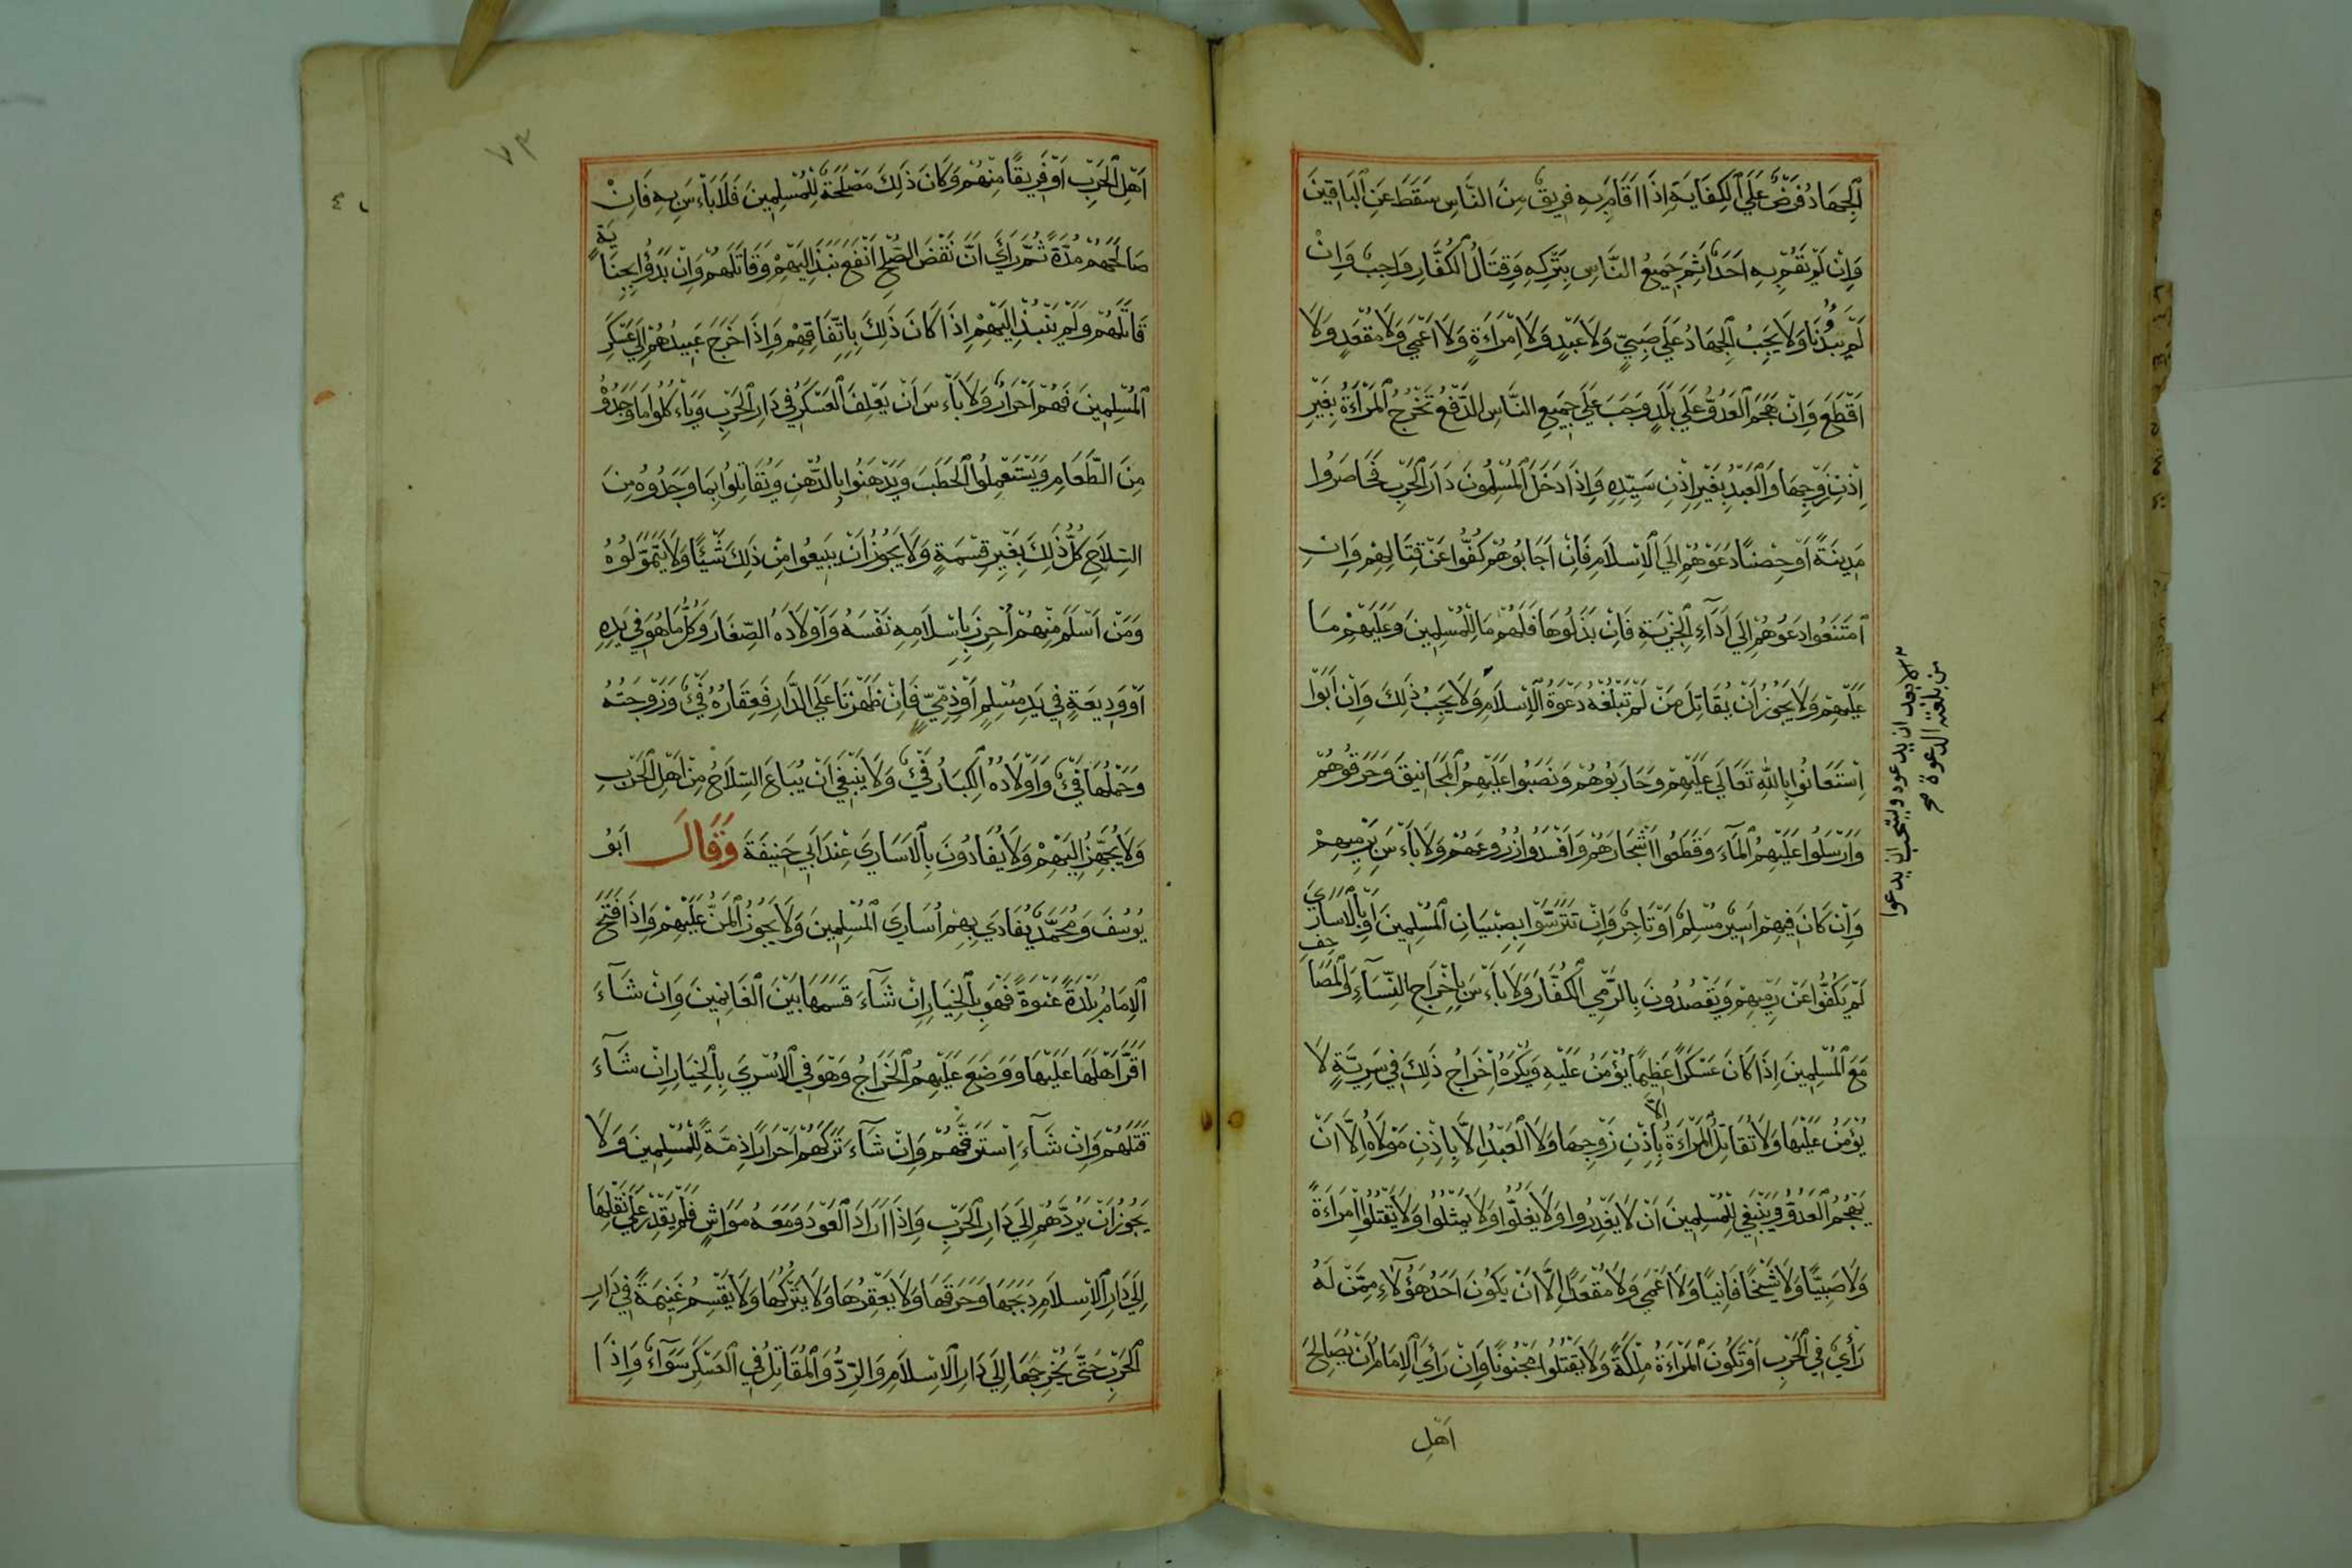 اَلْجِهَادُ فَرْضٌ عَلَي الْكِفَايَةِ اِذَا قَامَ بِهِ فَرِيقٌ مِنَ النَّاسِ سَقَطَ عَنِ الْبَاقِينَ
وَاِنْ لَمْ يَقُمْ بِهِ اَحَدٌ اَثِمَ جَمِيعُ النَّاسِ بِتَرْكِهِ وَقِتَالُ الْكُفَّارِ وَاجِبٌ وَاِنْ
لَمْ يَبْدَؤُنَا وَلَا يَجِبُ الْجِهَادُ عَلَي صَبِيٍّ وَلَا عَبْدٍ وَلَا اِمْرَاَةٍ وَلَا اَعْمَي وَلَا مُقْعَدٍ وَلَا
اَقْطَعَ وَاِنْ هَجَمَ الْعَدُوُّ عَلَي بَلَدٍ وَجَبَ عَلَي جَمِيعِ النَّاسِ الدَّفْعُ تَخْرُجُ الْمَرْاَةُ بِغَيْرِ
اِذْنِ زَوْجِهَا وَالْعَبْدُ بِغَيْرِ اِذْنِ سَيِّدِهِ وَاِذَا دَخَلَ الْمُسْلِمُونَ دَارَ الْحَرْبِ فَحَاصَرُوا
مَدِينَةً اَوْ حِصْنًا دَعَوْهُمْ اِلَي الْاِسْلَامِ فَاِنْ اَجَابُوهُمْ كَفُّوا عَنْ قِتَالِهِمْ وَاِنِ
امْتَنَعُوا دَعَوْهُمْ اِلَي اَدَآءِ الْجِزْيَةِ فَاِنْ بَذَلُوهَا فَلَهُمْ مَا لِلْمُسْلِمِينَ وَعَلَيْهِمْ مَا
عَلَيْهِمْ وَلَا يَجُوزُ اَنْ يُقَاتِلَ مَنْ لَمْ تَبْلُغْهُ دَعْوَةُ الْاِسْلَامِ وَلَا يَجِبُ ذٰلِكَ وَاِنْ اَبَوْا
اِسْتَعَانُوا بِاللّٰهِ تَعَالَي عَلَيْهِمْ وَحَارَبُوهُمْ وَنَصَبُوا عَلَيْهِمُ الْمَجَانِيقَ وَحَرَقُوهُمْ
وَاَرْسَلُوا عَلَيْهِمُ الْمَآءَ وَقَطَعُوا اَشْجَارَهُمْ وَاَفْسَدُوا زُرُوعَهُمْ وَلَا بَاْسَ بِرَمْيِهِمْ
وَاِنْ كَانَ فِيهِمْ اَسِيرٌ مُسْلِمٌ اَوْ تَاجِرٌ وَاِنْ تَتَرَّسُوْا بِصِبْيَانِ الْمُسْلِمِينَ اَوْ بِالْاَسَارَي
لَمْ يَكُفُّوا عَنْ رَمْيِهِمْ وَيَقْصُدُونَ بِالرَّمْيِ الْكُفَّارَ وَلَا بَاْسَ بِاِخْرَاجِ النِّسَآءِ وَالْمَصَاحِفِ
مَعَ الْمُسْلِمِينَ اِذَا كَانَ عَسْكَرًا عَظِيمًا يُؤْمَنُ عَلَيْهِ وَيُكْرَهُ اِخْرَاجُ ذٰلِكَ فِي سَرِيَّةٍ لَا
يُؤْمَنُ عَلَيْهَا وَلَا تُقَاتِلُ الْمَرْاَةُ اِلَّا بِاِذْنِ زَوْجِهَا وَلَا الْعَبْدُ اِلَّا بِاِذْنِ مَوْلَاهُ اِلَّا اَنْ
يَهْجُمَ الْعَدُوُّ وَيَنْبَغِي لِلْمُسْلِمِينَ اَنْ لَا يَغْدِرُوا وَلَا يَغُلُّوا وَلَا يَمْثُلُوا وَلَا يَقْتُلُوا امْرَاَةً
وَلَا صَبِيًّا وَلَا شَيْخًا فَانِيًا وَلَا اَعْمَي وَلَا مُقْعَدًا اِلَّا اَنْ يَكُونَ اَحَدُ هٰؤُلَآءِ مِمَّنْ لَهُ
رَأْيٌ فِي الْحَرْبِ اَوْ تَكُونَ الْمَرْاَةُ مَلِكَةً وَلَا يَقْتُلُوا مَجْنُونًا وَاِنْ رَاَيَ الْاِمَامُ اَنْ يُصَالِحَ
اَهْلَ
الا بعد ان يدعوه ويستحب ان يدعوا
من بلغته الدعوة صح
٧٣
اَهْلَ الْحَرْبِ اَوْ فَرِيقًا مِنْهُمْ وَكَانَ ذٰلِكَ مَصْلَحَةً لِلْمُسْلِمِينَ فَلَا بَاْسَ بِهِ فَاِنْ
صَالَحَهُمْ مُدَّةً ثُمَّ رَاَيَ اَنَّ نَقْضَ الصُّلْحِ اَنْفَعُ نَبَذَ اِلَيْهِمْ وَقَاتَلَهُمْ وَاِنْ بَدَؤُا بِخِيَانَةٍ
قَاتَلَهُمْ وَلَمْ يَنْبُذْ اِلَيْهِمْ اِذَا كَانَ ذٰلِكَ بِاِتِّفَاقِهِمْ وَاِذَا خَرَجَ عَبِيدُهُمْ اِلَي عَسْكَرِ
الْمُسْلِمِينَ فَهُمْ اَحْرَارٌ وَلَا بَاْسَ اَنْ يَعْلِفَ الْعَسْكَرُ فِي دَارِ الْحَرْبِ وَيَاْكُلُوا مَا وَجَدُوهُ
مِنَ الطَّعَامِ وَيَسْتَعْمِلُوا الْحَطَبَ وَيَدَّهِنُوا بِالدُّهْنِ وَيُقَاتِلُوا بِمَا وَجَدُوهُ مِنَ
السِّلَاحِ كُلُّ ذٰلِكَ بِغَيْرِ قِسْمَةٍ وَلَا يَجُوزُ اَنْ يَبِيعُوا مِنْ ذٰلِكَ شَيْئًا وَلَا يَتَمَوَّلُوهُ
وَمَنْ اَسْلَمَ مِنْهُمْ اَحْرَزَ بِاِسْلَامِهِ نَفْسَهُ وَاَوْلَادَهُ الصِّغَارَ وَكُلَّ مَا هُوَ فِي يَدِهِ
اَوْ وَدِيعَةٍ فِي يَدِ مُسْلِمٍ اَوْ ذِمِّيٍّ فَاِنْ ظَهَرْنَا عَلَي الدَّارِ فَعِقَارُهُ فَيْءٌ وَزَوْجَتُهُ
وَحَمْلُهَا فَيْءٌ وَاَوْلَادُهُ الْكِبَارُ فَيْءٌ وَلَا يَنْبَغِي اَنْ يُبَاعَ السِّلَاحُ مِنْ اَهْلِ الْحَرْبِ
وَلَا يُجَهَّزَ اِلَيْهِمْ وَلَا يُفَادُونَ بِالْاَسَارَي عِنْدَ اَبِي حَنِيفَةَ وَقَالَ اَبُو
يُوسُفَ وَمُحَمَّدٌ يُفَادَي بِهِمْ اُسَارَي الْمُسْلِمِينَ وَلَا يَجُوزُ الْمَنُّ عَلَيْهِمْ وَاِذَا فَتَحَ
الْاِمَامُ بَلْدَةً عَنْوَةً فَهُوَ بِالْخِيَارِ اِنْ شَآءَ قَسَمَهَا بَيْنَ الْغَانِمِينَ وَاِنْ شَآءَ
اَقَرَّ اَهْلَهَا عَلَيْهَا وَوَضَعَ عَلَيْهِمُ الْخَرَاجَ وَهُوَ فِي الْاَسْرَي بِالْخِيَارِ اِنْ شَآءَ
قَتَلَهُمْ وَاِنْ شَآءَ اِسْتَرَقَّهُمْ وَاِنْ شَآءَ تَرَكَهُمْ اَحْرَارًا ذِمَّةً لِلْمُسْلِمِينَ وَلَا
يَجُوزُ اَنْ يَرُدَّهُمْ اِلَي دَارِ الْحَرْبِ وَاِذَا اَرَادَ الْعَوْدَ وَمَعَهُ مَوَاشٍ فَلَمْ يَقْدِرْ عَلَي نَقْلِهَا
اِلَي دَارِ الْاِسْلَامِ ذَبَحَهَا وَحَرَقَهَا وَلَا يَعْقِرُهَا وَلَا يَتْرُكُهَا وَلَا يَقْسِمُ غَنِيمَةً فِي دَارِ
الْحَرْبِ حَتَّي يُخْرِجَهَا اِلَي دَارِ الْاِسْلَامِ وَالرِّدْءُ وَالْمُقَاتِلُ فِي الْعَسْكَرِ سَوَآءٌ وَاِذَا